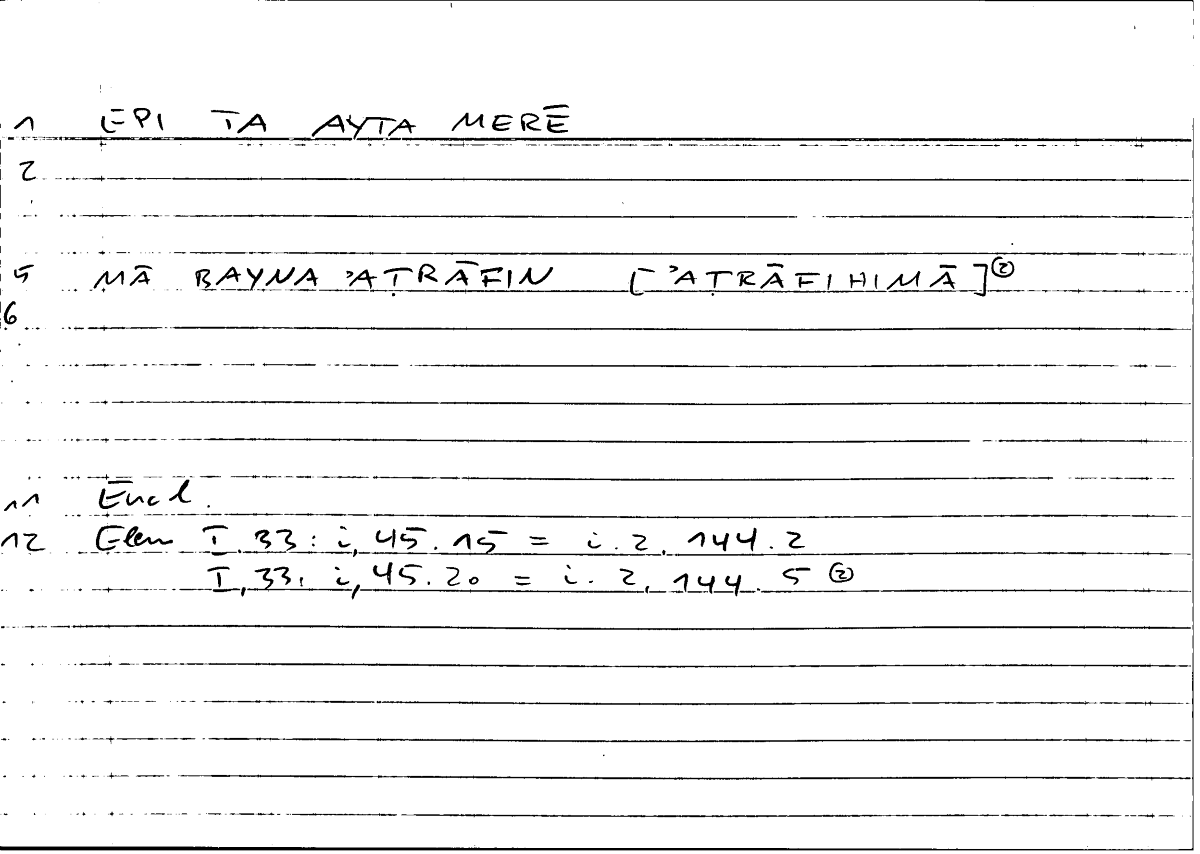 1 EPI TA AYTA MERĒ
2
5 MĀ BAYNA ʾAṬRĀFIN [ʾAṬRĀFIHIMĀ]②
6
11 Eucl.
12 Elem I,33: i,45.15 = i.2,144.2
I,33: i,45.20 = i.2,144.5 ②